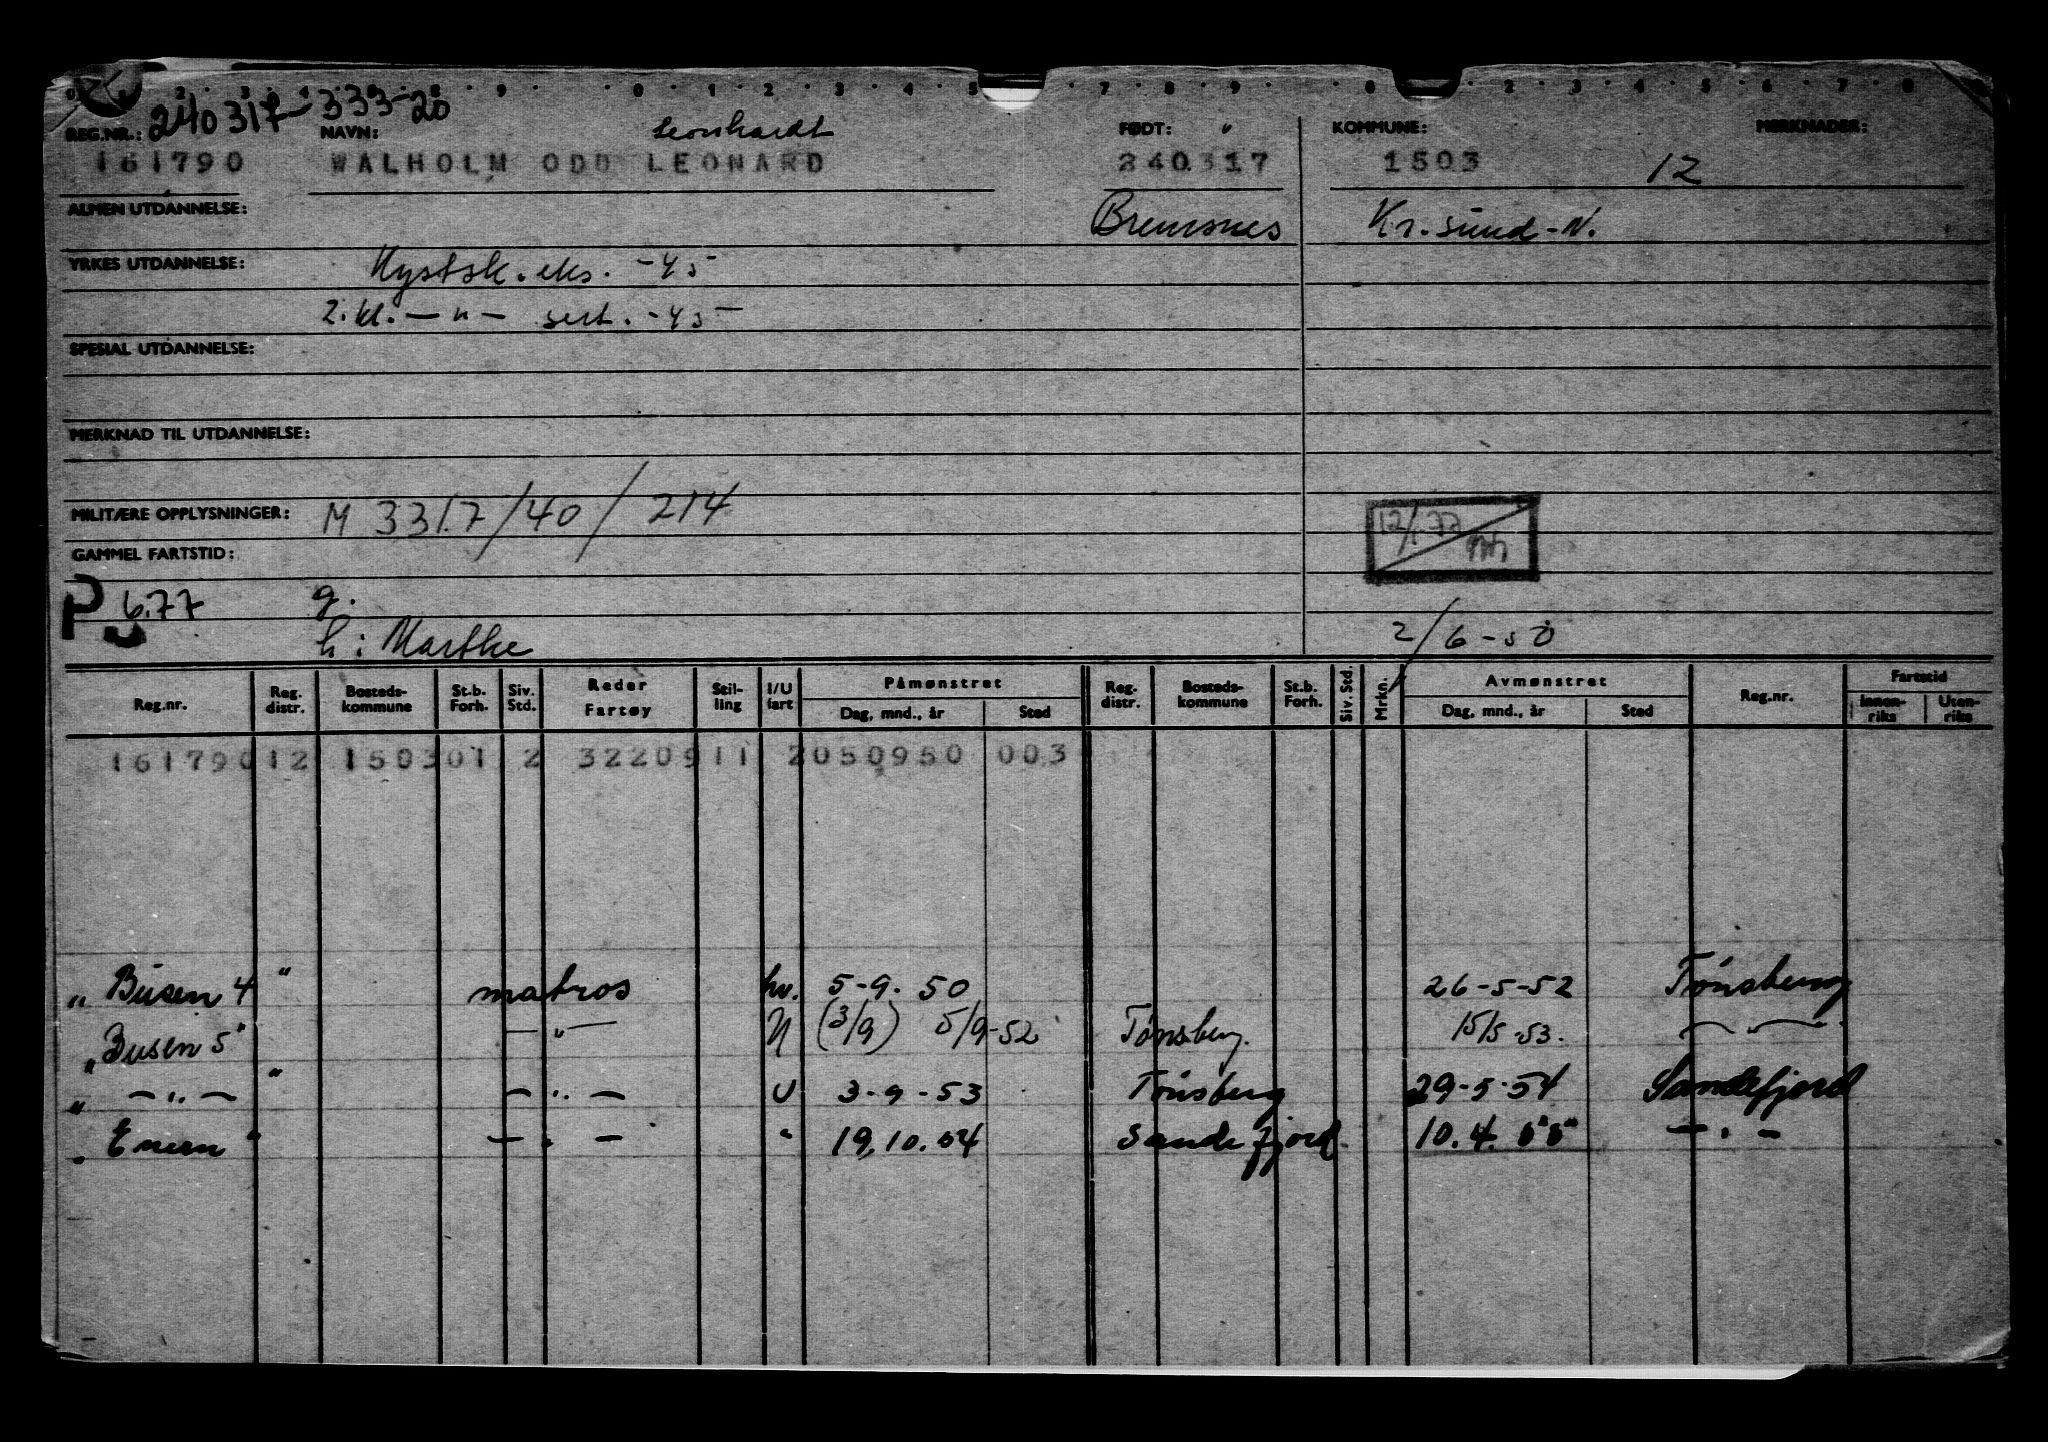 240317-333-20
REG.NR.: NAVN: Leonhardt FØDT: " KOMMUNE: MERKNADER:
161790 WALHOLM ODD LEONARD 240317 1503 12
ALMEN UTDANNELSE: Bremsnes Kr.sund-N.
YRKES UTDANNELSE: Kystsk.eks. -45
2.kl. — " — sert. -45
SPESIAL UTDANNELSE:
MERKNAD TIL UTDANNELSE:
MILITÆRE OPPLYSNINGER: M 3317/40/214
12/1.77
GAMMEL FARTSTID:
P 6.77 g.
h: Marthe 2/6-50
Reg.nr. Reg. distr. Bosteds-kommune St.b. Forh. Siv. Std. Reder Fartøy Stil-ling I/U fart Påmønstret Dag, mnd., år Sted Reg. distr. Bosteds-kommune St.b. Forh. Siv. Std. Mrkn. Avmønstret Dag, mnd., år Sted Reg.nr. Fartstid Innen-riks Uten-riks
161790 12 1503 01 2 32209 11 2 050950 003
"Busen 4" matros hv. 5-9. 50 26-5-52 Tønsberg
"Busen 5" — " — U (3/9) 5/9-52 Tønsberg. 15/5-53. — " —
" — " — " — " — U 3-9-53 Tønsberg 29-5-54 Sandefjord
"Enern" — " — " 19.10.54 Sandefjord. 10.4. 55 — " —